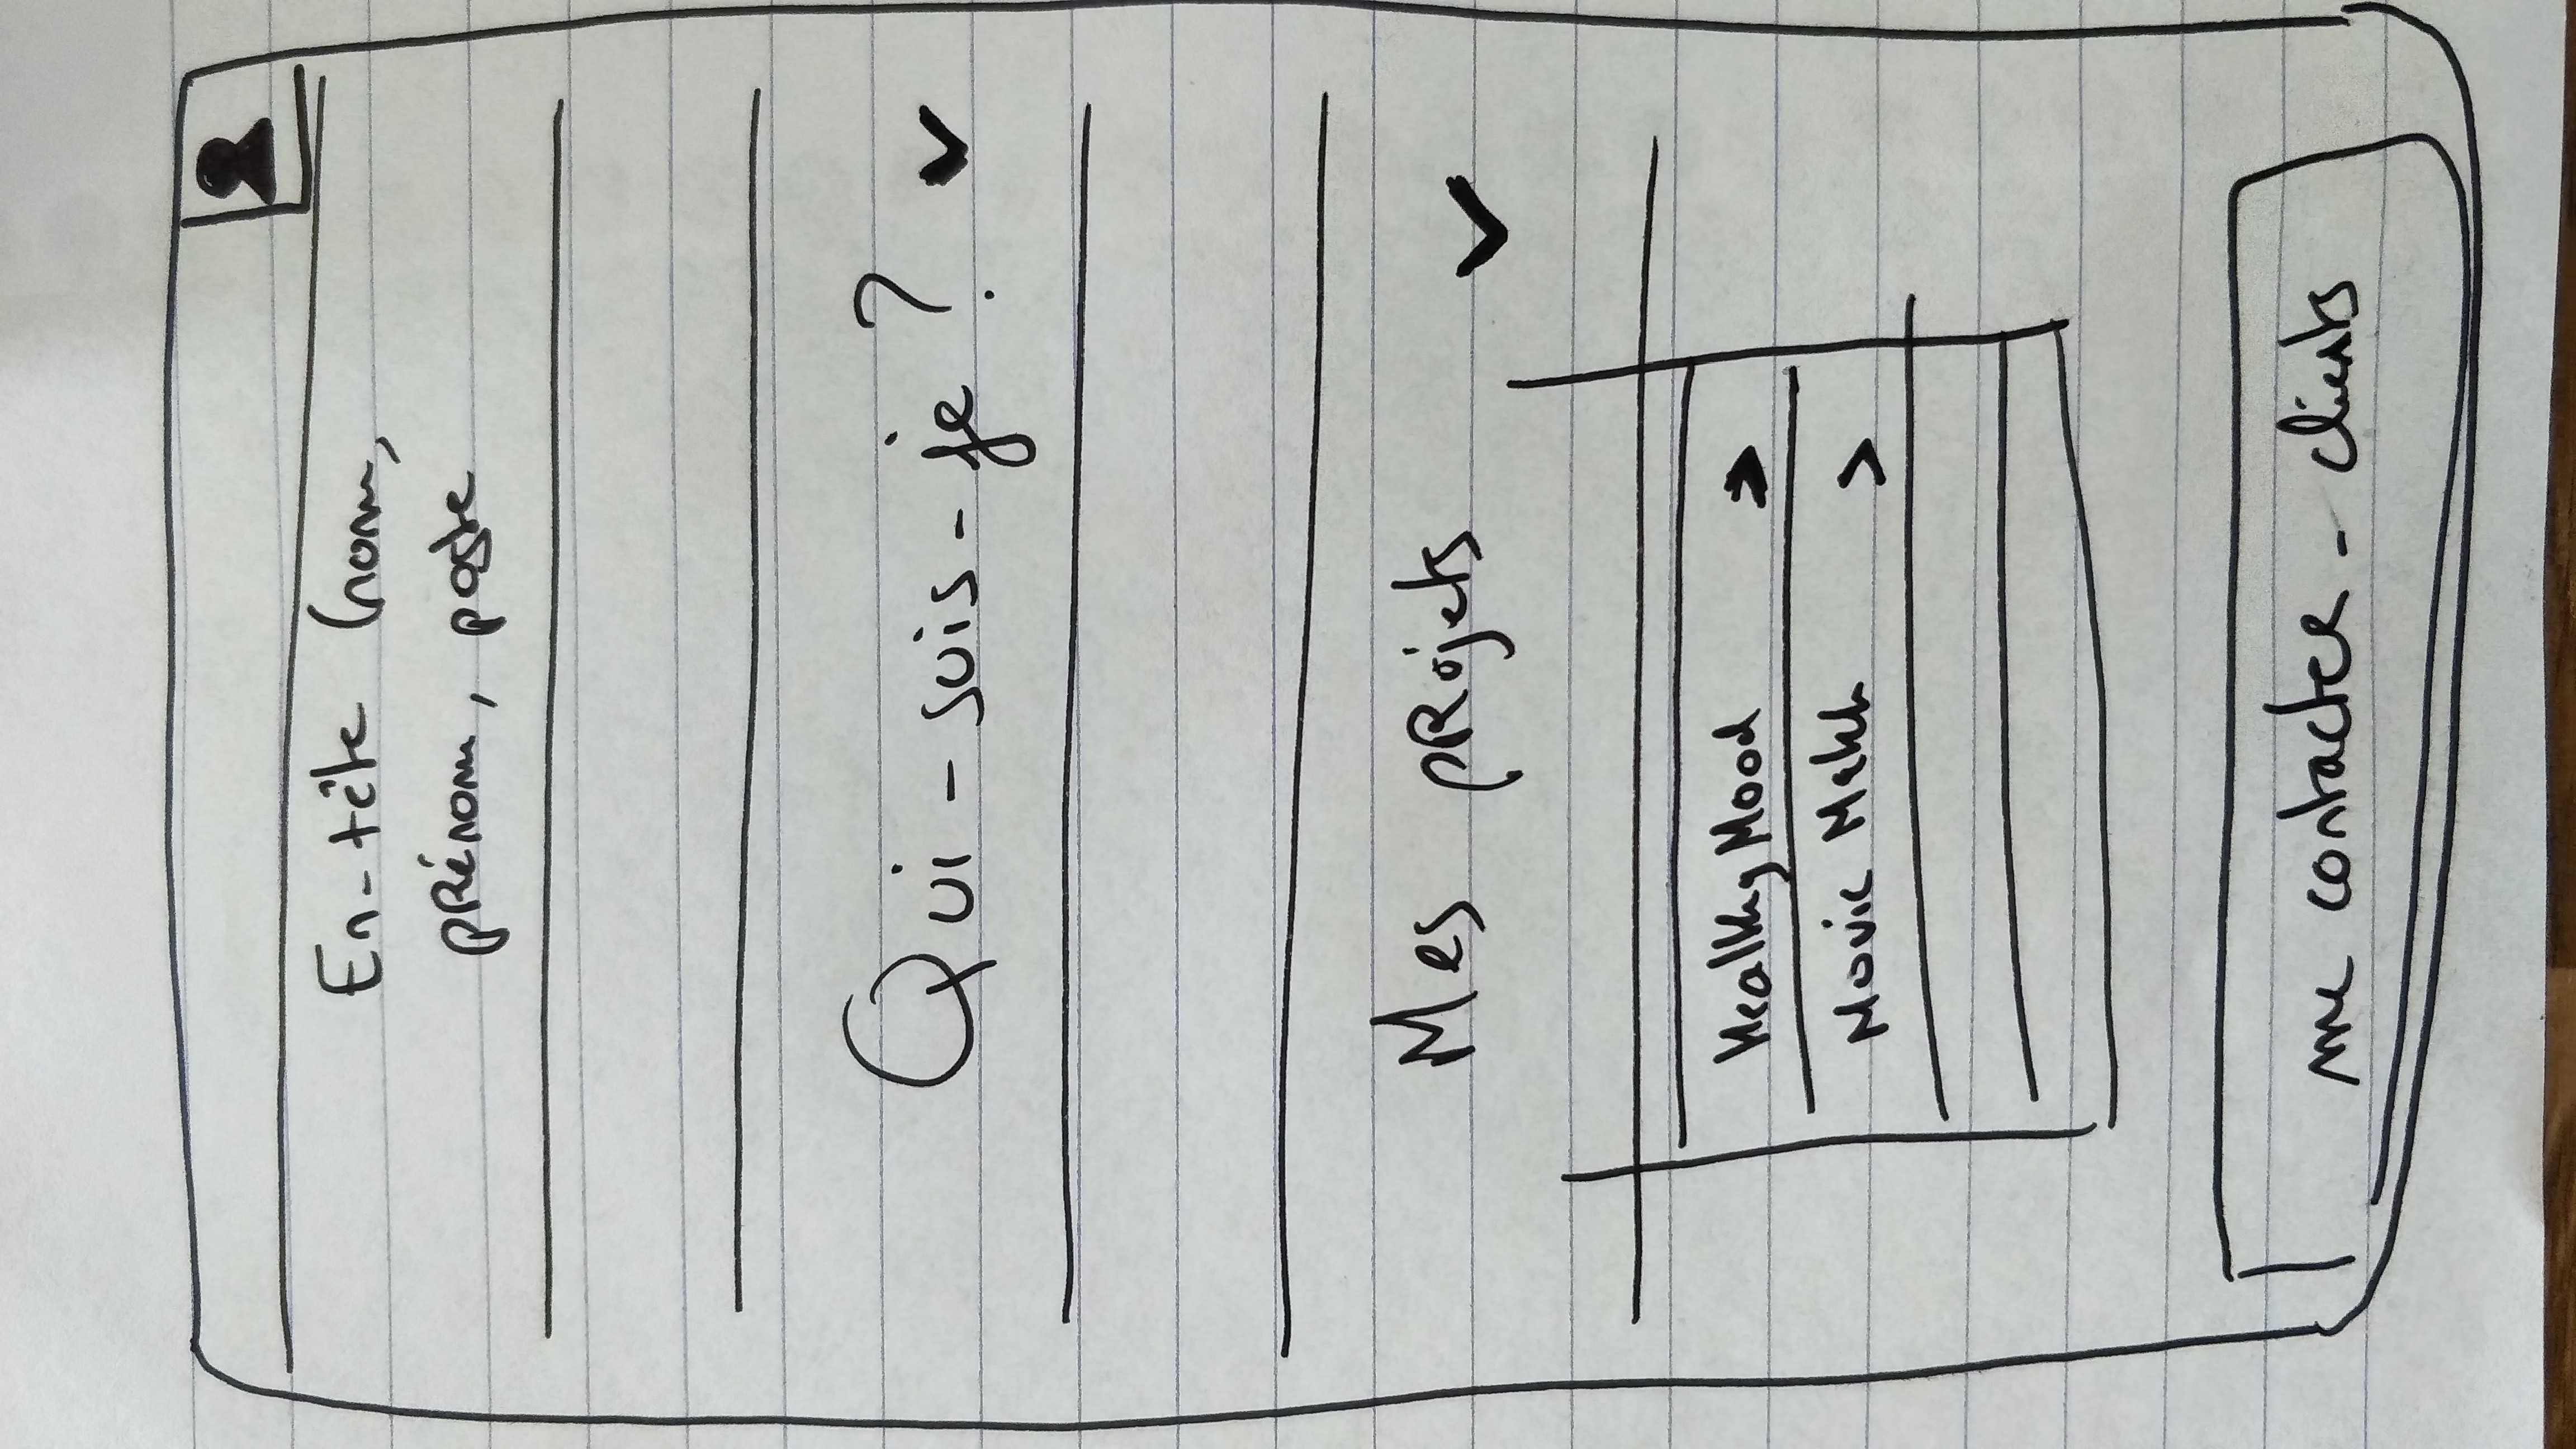 En-tête (nom,
prénom, poste
Qui-suis-je ?
Mes projets
Healthy Mood
Movie Match
me contacter - clients